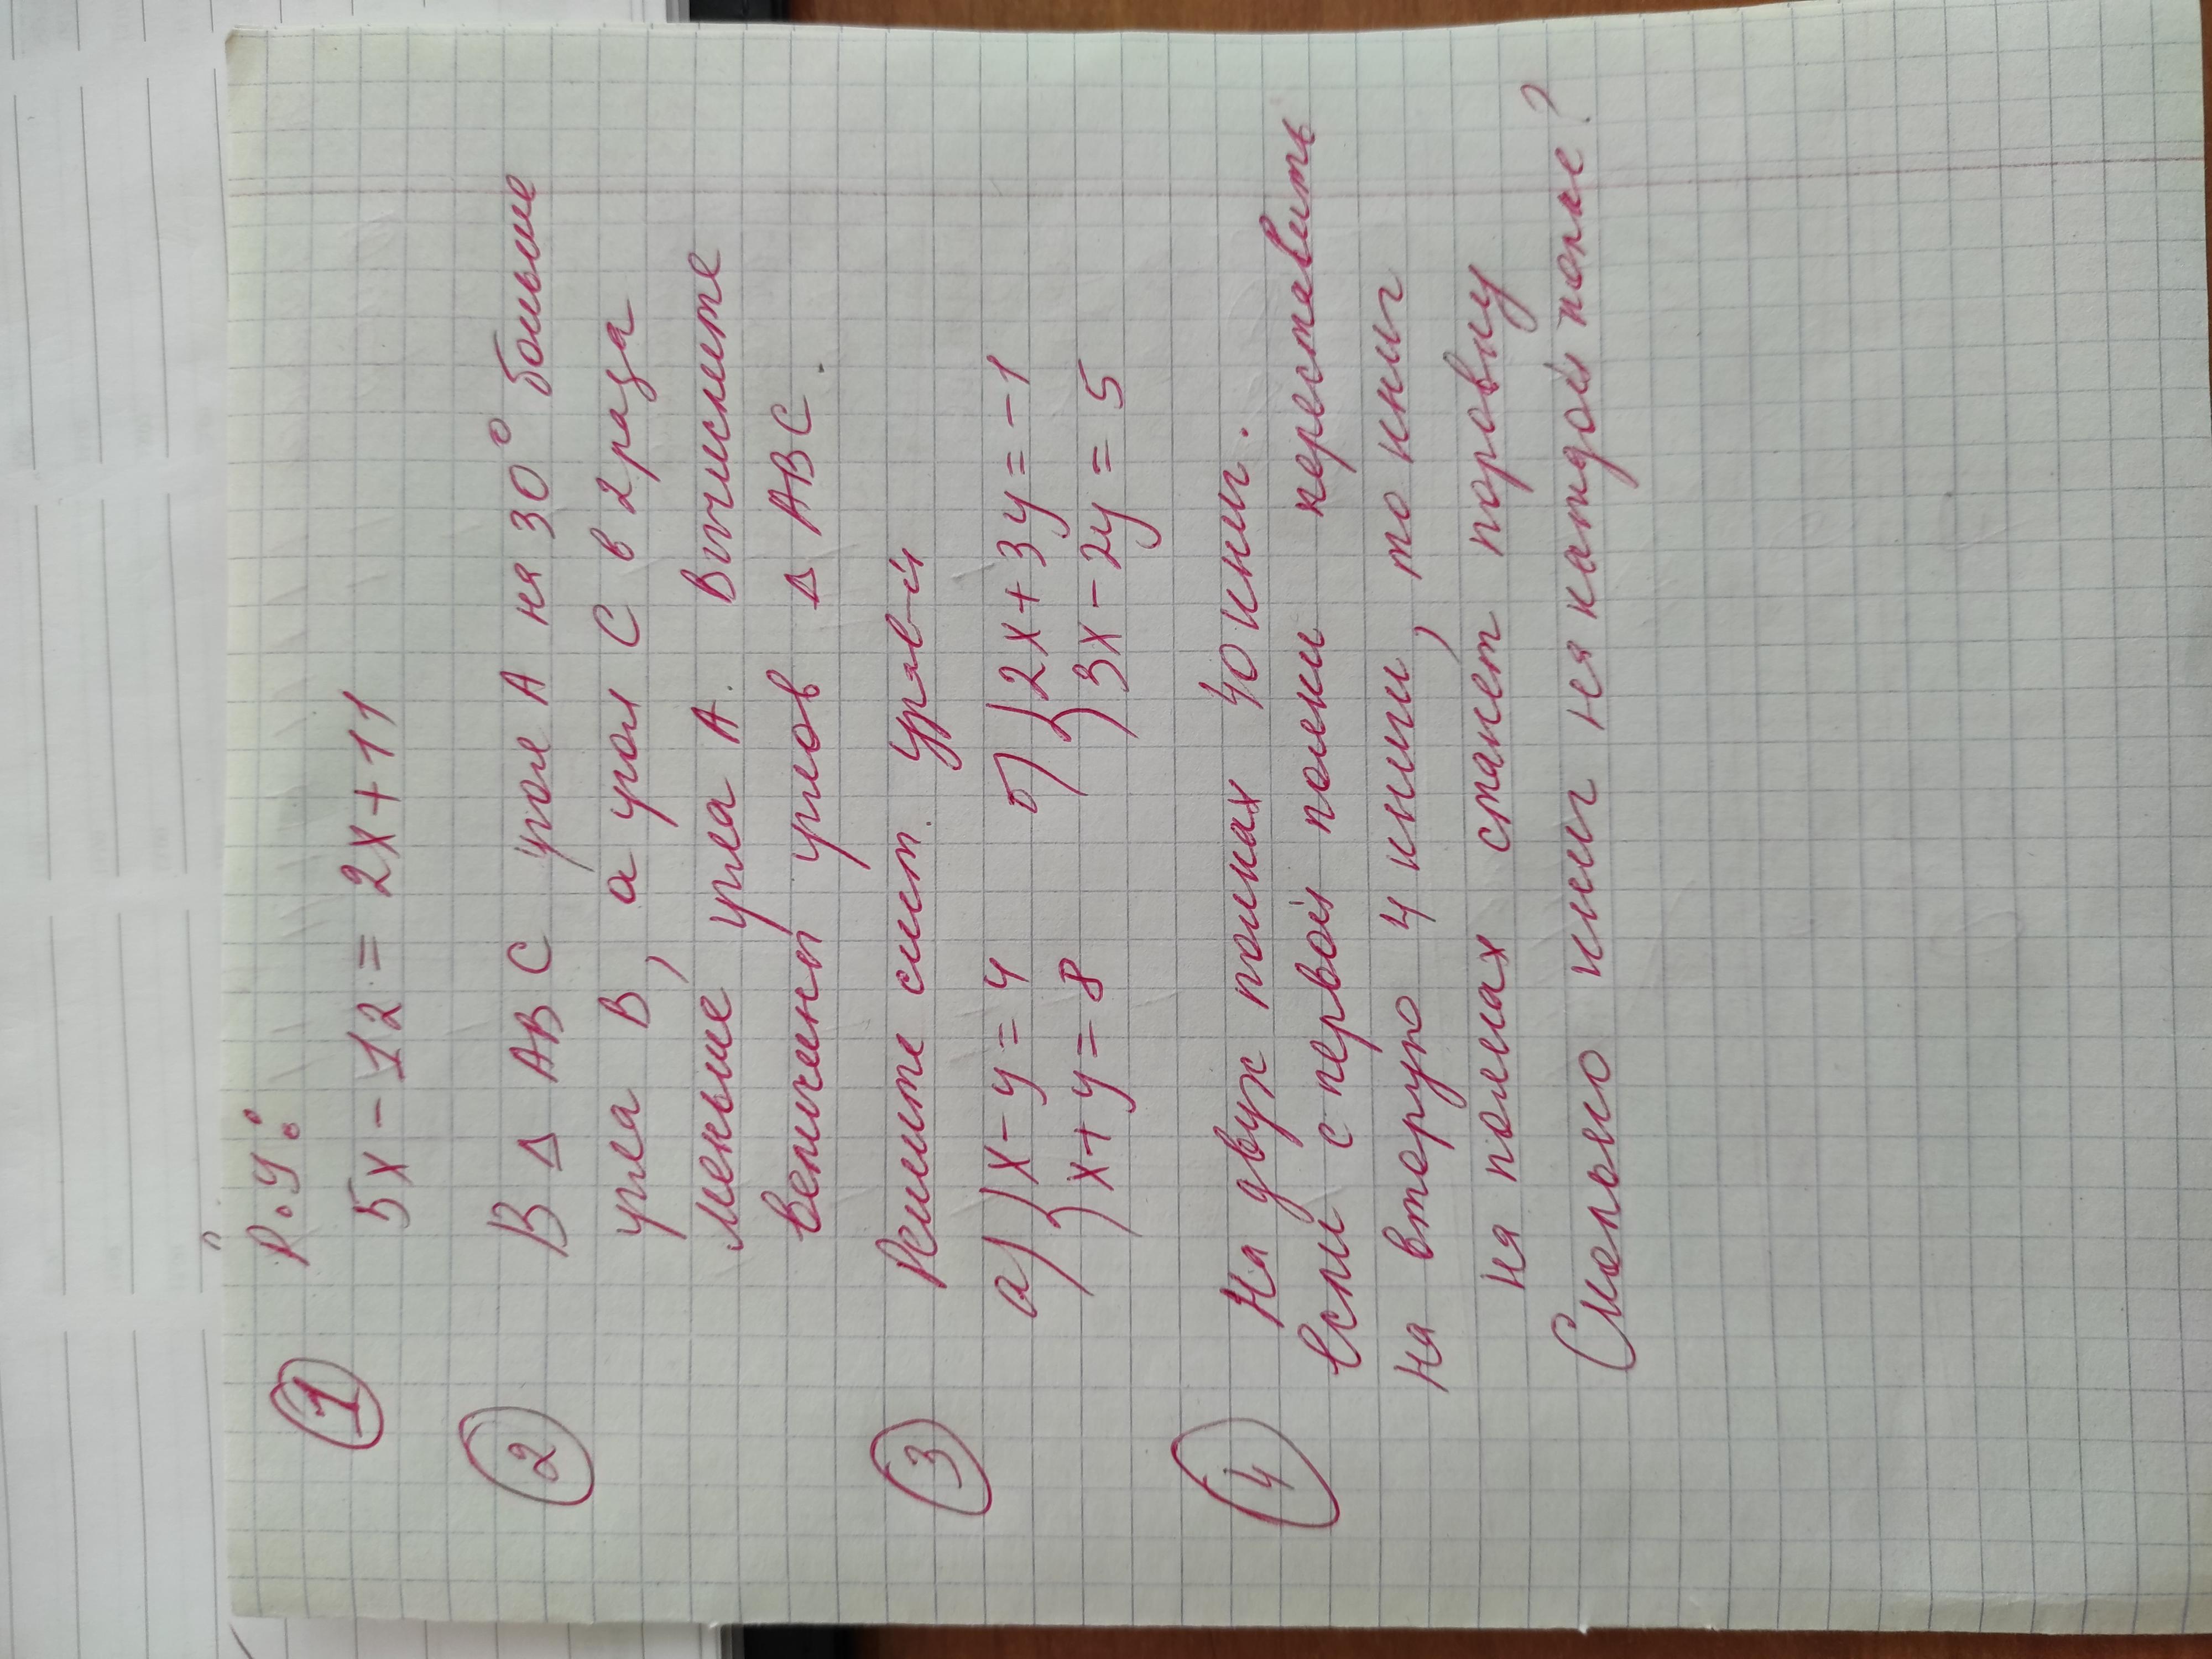 ① Р.У:
5x - 12 = 2x + 11
② В Δ АВС угол А на 30° больше
угла В, а угол С в 2 раза
меньше угла А. Вычислите
величины углов Δ АВС.
③ Решите сист. урав-й
а) { x - y = 4 б) { 2x + 3y = -1
x + y = 8 3x - 2y = 5
④ На двух полках 40 книг.
Если с первой полки переставить
на вторую 4 книги, то книг
на полках станет поровну
Сколько книг на каждой полке?